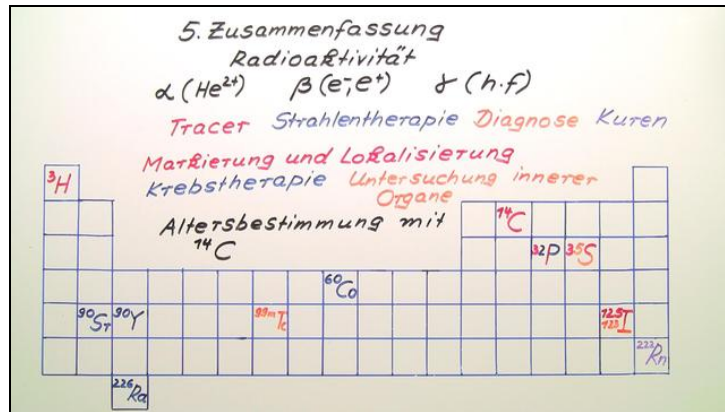 5. Zusammenfassung
Radioaktivität
α (He²⁺) β (e⁻, e⁺) γ (h·f)
Tracer Strahlentherapie Diagnose Kuren
Markierung und Lokalisierung
Krebstherapie Untersuchung innerer
Organe
Altersbestimmung mit
¹⁴C
³H
¹⁴C
³²P ³⁵S
⁶⁰Co
⁹⁰Sr ⁹⁰Y ⁹⁹ᵐTc ¹²⁵I
¹²³
²²²Rn
²²⁶Ra